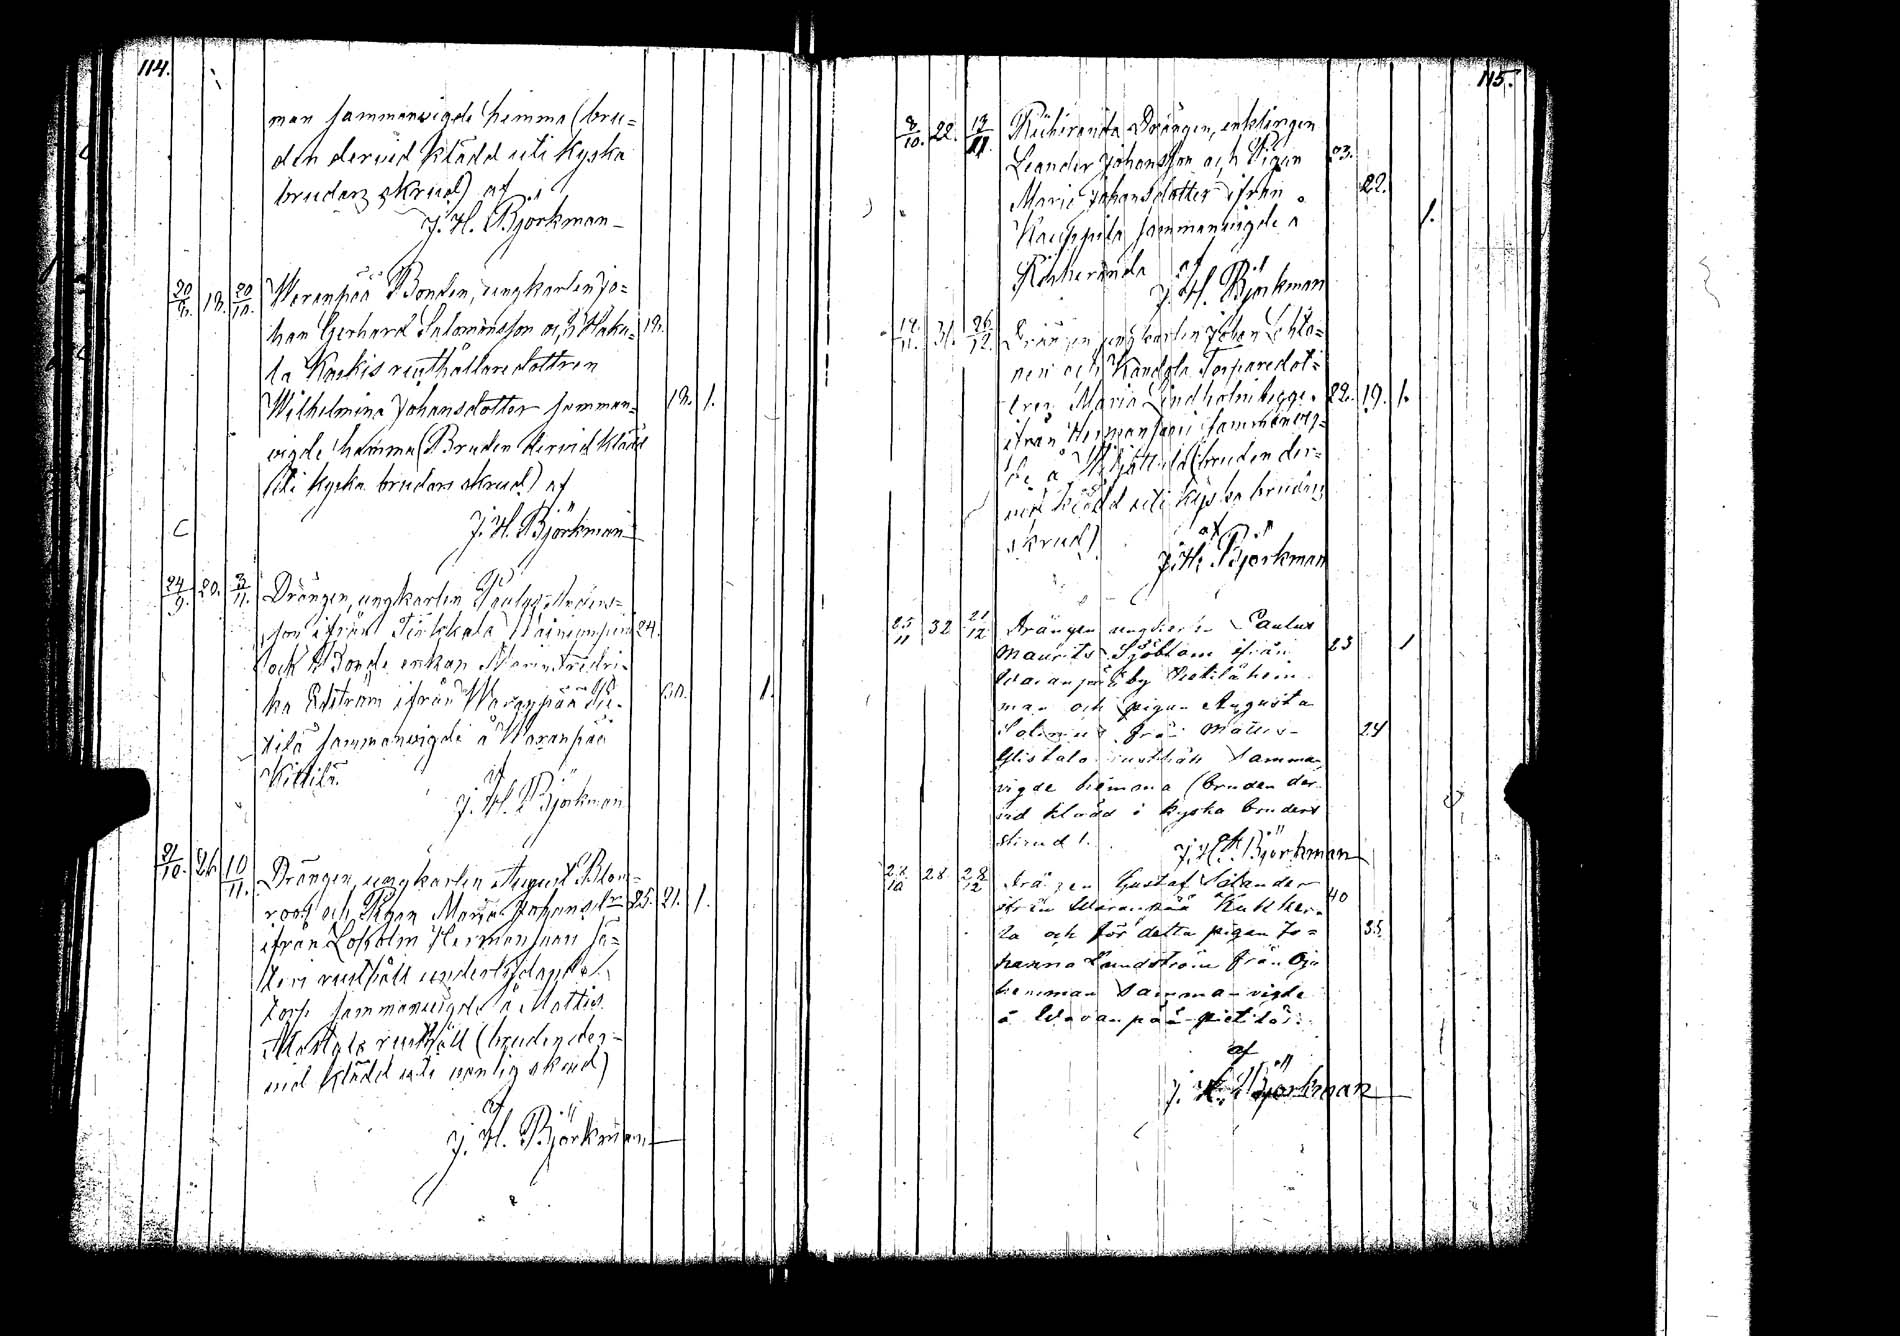 114.
man sammanvigde hemma (bru=
den dervid klädd uti kyska
brudars skrud) af
J. H. Björkman
20/9. 18. 20/10. Waranpää Bonden, ungkarlen Jo=
han Gerhard Salomonsson och Haka= 19.
la Kaskis rusthållaredottren
Wilhelmina Johansdotter samman= 18. 1.
vigde hemma (Bruden dervid klädd
uti kyska brudars skrud) af
J. H. Björkman
24/9. 20. 3/11. Drängen, ungkarlen Paulus Anders=
son ifrån Tirkkala 24.
och Bonde enkan Maria Fredri=
ka Edström ifrån Waranpää Kit=
tilä sammanvigde å Waranpää 1.
Kittilä. af
J. H. Björkman
21/10. 26 10/11. Drängen, ungkarlen August Blom=
roos och Pigan Maria Johansdr 25. 21. 1.
ifrån Lokolm Hermansaari Sä=
teri rusthåll underlydande
torp sammanvigde å Mattis
rusthåll (bruden der=
vid klädd uti vanlig skrud)
af
J. H. Björkman
115.
8/10. 22. 13/11. Drängen, enklingen
Leander Johansson och Pigan 23.
Maria Johansdotter ifrån 22.
Kauppila sammanvigde å 1.
af
J. H. Björkman
19/11. 31. 26/12. Drängen, ungkarlen Johan Lehto=
nen och Kandola Torparedot=
tren Maria Lindholm begge 22. 19. 1.
ifrån Hermansaari sammanvig=
de å (bruden der=
vid klädd uti kyska brudars
skrud) af
J. H. Björkman
25/11 32 21/12 Drängen ungkarlen Paulus
Maurits Sjöblom ifrån 23 1
Waranpää by Kietilä hem=
man och pigan Augusta
från Mattis= 24
rusthåll samman
vigde hemma (bruden der=
vid klädd i kyska brudars
skrud). af
J. H. Björkman
28 28/12 Drängen Gustaf Selander
ifrån Waranpää 40
la och för detta pigan Jo= 35.
hanna Lundström från Oja
hemman sammanvigde
å Waranpää
af
J. H. Björkman